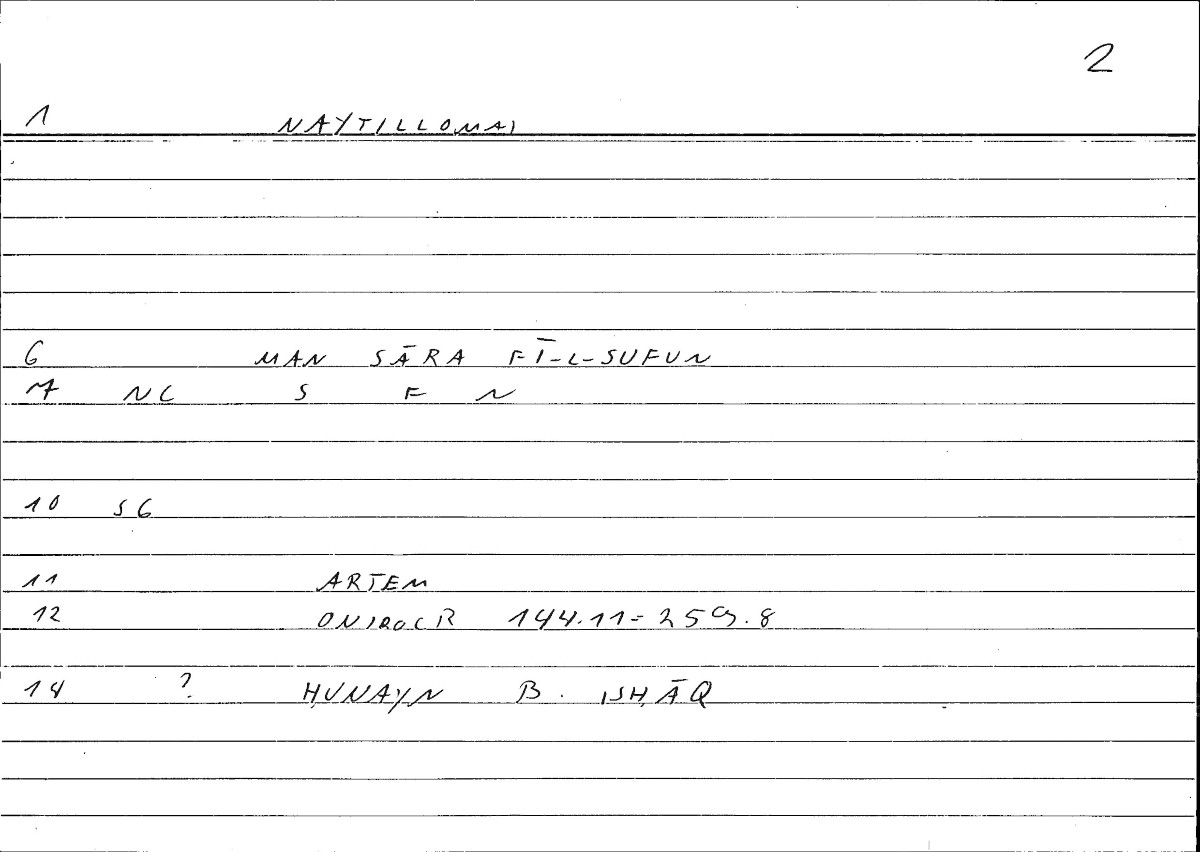 2
1 NAYTILLOMAI
6 MAN SĀRA FĪ-L-SUFUN
7 NC S F N
10 SG
11 ARTEM
12 ONIROCR 144.11=259.8
14 ? ḤUNAYN B. ISḤĀQ